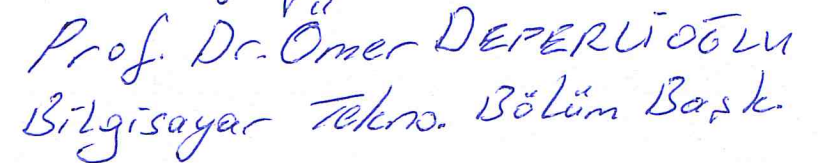 Prof. Dr. Ömer DEPERLİOĞLU
Bilgisayar Tekno. Bölüm Başk.